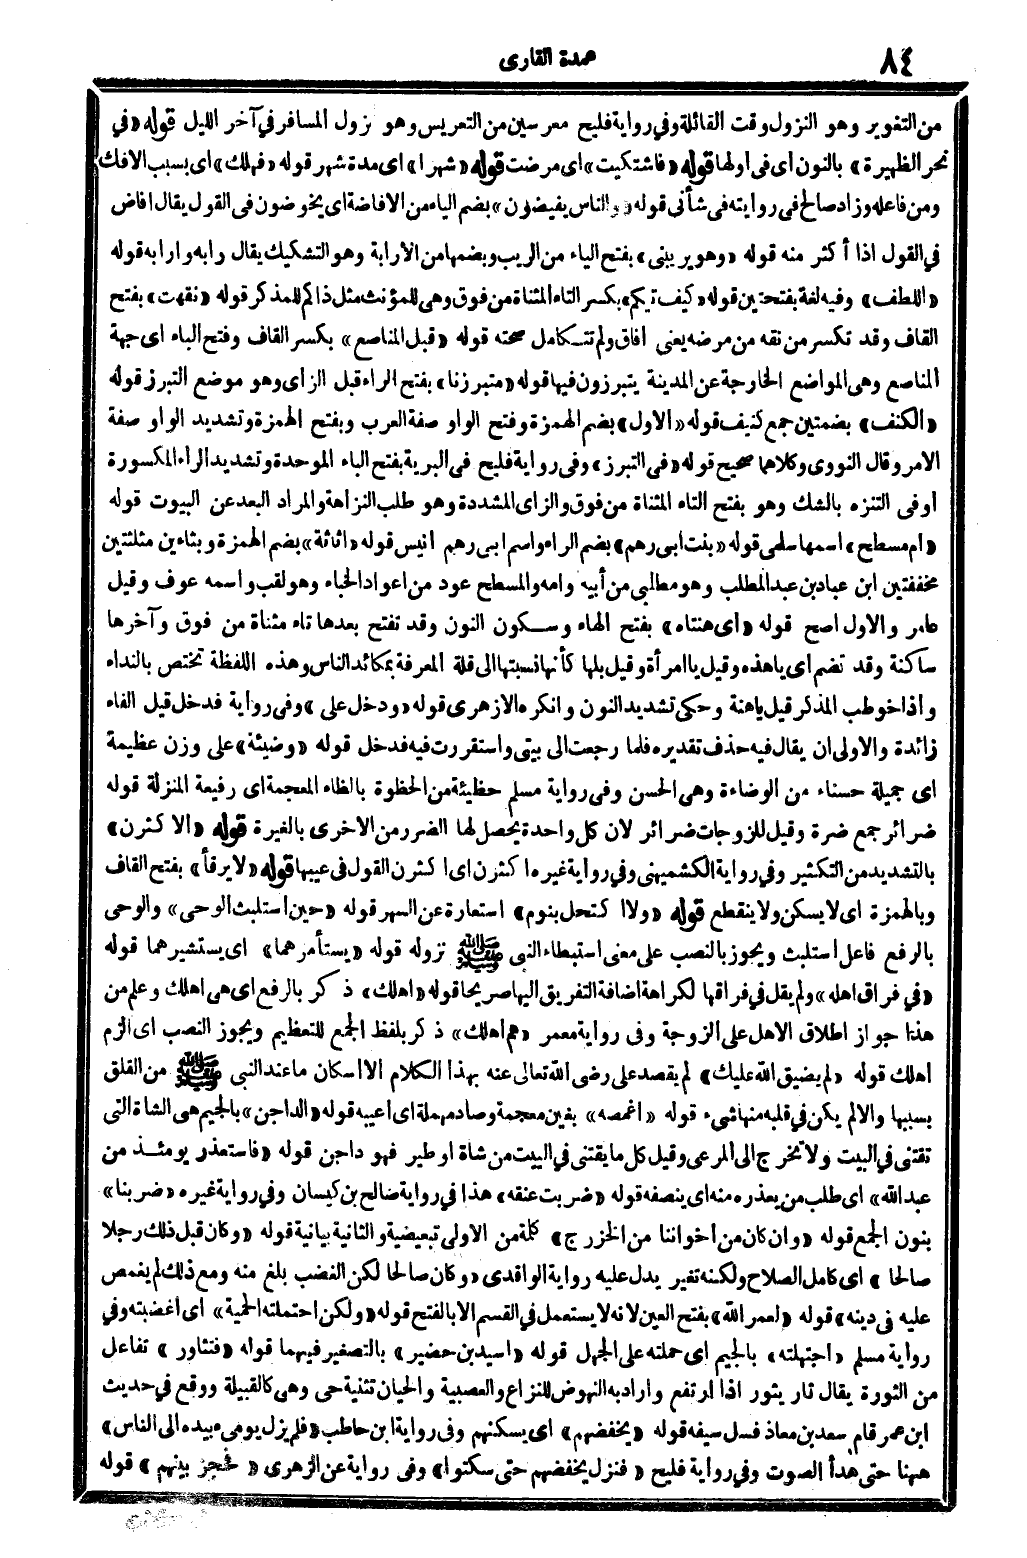 ٨٤
عمدة القارى
من التغوير وهو النزول وقت القائلة وفي رواية فليح معرسين من التعريس وهو نزول المسافر في آخر الليل قوله «في
نحر الظهيرة» بالنون اى فى اولها قوله «فاشتكيت» اى مرضت قوله «شهرا» اى مدة شهر قوله «فهلك» اى بسبب الافك
ومن فاعله وزاد صالح فى روايته فى شأنى قوله «والناس يفيضون» بضم الياء من الافاضة اى يخوضون فى القول يقال افاض
في القول اذا أكثر منه قوله «وهو يريبنى» بفتح الياء من الريب وبضمها من الارابة وهو التشكيك يقال رابه وارابه قوله
«اللطف» وفيه لغة بفتحتين قوله «كيف تيكم» بكسر التاء المثناة من فوق وهى للمؤنث مثل ذاكم للمذكر قوله «نقهت» بفتح
القاف وقد تكسر من نقه من مرضه يعنى افاق ولم تتكامل صحته قوله «قبل المناصع» بكسر القاف وفتح الباء اى جهة
المناصع وهى المواضع الخارجة عن المدينة يتبرزون فيها قوله «متبرزنا» بفتح الراء قبل الزاى وهو موضع التبرز قوله
«الكنف» بضمتين جمع كنيف قوله «الاول» بضم الهمزة وفتح الواو صفة العرب وبفتح الهمزة وتشديد الواو صفة
الامر وقال النووى وكلاهما صحيح قوله «فى التبرز» وفى رواية فليح فى البرية بفتح الباء الموحدة وتشديد الراء المكسورة
أوفى التنزه بالشك وهو بفتح التاء المثناة من فوق والزاى المشددة وهو طلب النزاهة والمراد البعد عن البيوت قوله
«ام مسطح» اسمها سلمى قوله «بنت ابى رهم» بضم الراء واسم ابى رهم انيس قوله «اثاثة» بضم الهمزة وبثاءين مثلثتين
مخففتين ابن عباد بن عبد المطلب وهو مطلبى من أبيه وامه والمسطح عود من اعواد الخباء وهو لقب واسمه عوف وقيل
عامر والاول اصح قوله «أى هنتاه» بفتح الهاء وسكون النون وقد تفتح بعدها تاء مثناة من فوق وآخرها
ساكنة وقد تضم اى ياهذه وقيل ياامرأة وقيل بلها كأنها نسبتها الى قلة المعرفة بمكائد الناس وهذه اللفظة تختص بالنداء
وأذا خوطب المذكر قيل ياهنة وحكى تشديد النون وانكره الازهرى قوله «ودخل على» وفى رواية فدخل قيل الفاء
زائدة والاولى ان يقال فيه حذف تقديره فلما رجعت الى بيتى واستقررت فيه فدخل قوله «وضيئة» على وزن عظيمة
اى جميلة حسناء من الوضاءة وهى الحسن وفى رواية مسلم حظيئة من الحظوة بالظاء المعجمة اى رفيعة المنزلة قوله
ضرائر جمع ضرة وقيل للزوجات ضرائر لان كل واحدة يحصل لها الضرر من الاخرى بالغيرة قوله «الا كثرن»
بالتشديد من التكثير وفى رواية الكشميهنى وفى رواية غيره اكثرن اى اكثرن القول فى عيبها قوله «لا يرقأ» بفتح القاف
وبالهمزة اى لا يسكن ولا ينقطع قوله «ولا اكتحل بنوم» استعارة عن السهر قوله «حين استلبث الوحى» والوحى
بالرفع فاعل استلبث ويجوز بالنصب على معنى استبطاء النبى ﷺ نزوله قوله «يستأمرهما» اى يستشيرهما قوله
«في فراق اهله» ولم يقل في فراقها لكراهة اضافة التفريق اليها صريحا قوله «اهلك» ذكر بالرفع اى هى اهلك وعلم من
هذا جواز اطلاق الاهل على الزوجة وفى رواية معمر «هم اهلك» ذكر بلفظ الجمع للتعظيم ويجوز النصب اى الزم
اهلك قوله «لم يضيق الله عليك» لم يقصد على رضى الله تعالى عنه بهذا الكلام الا اسكان ما عند النبى ﷺ من القلق
بسببها والا لم يكن في قلبه منها شىء قوله «اغمصه» بغين معجمة وصاد مهملة اى اعيبه قوله «الداجن» بالجيم هى الشاة التى
تقتنى في البيت ولا تخرج الى المرعى وقيل كل ما يقتنى في البيت من شاة او طير فهو داجن قوله «فاستعذر يومئذ من
عبد الله» اى طلب من يعذره منه اى ينصفه قوله «ضربت عنقه» هذا في رواية صالح بن كيسان وفي رواية غيره «ضربنا»
بنون الجمع قوله «وان كان من أخواننا من الخزرج» كلمة من الاولى تبعيضية والثانية بيانية قوله «وكان قبل ذلك رجلا
صالحا» اى كامل الصلاح ولكنه تغير يدل عليه رواية الواقدى «وكان صالحا لكن الغضب بلغ منه ومع ذلك لم يغمص
عليه فى دينه» قوله «لعمر الله» بفتح العين لانه لا يستعمل في القسم الا بالفتح قوله «ولكن احتملته الحمية» اى أغضبته وفي
رواية مسلم «اجتهلته» بالجيم اى حملته على الجهل قوله «اسيد بن حضير» بالتصغير فيهما قوله «فتثاور» تفاعل
من الثورة يقال ثار يثور اذا ارتفع واراد به النهوض للنزاع والعصبية والحيان تثنية حى وهى كالقبيلة ووقع في حديث
ابن عمر قام سعد بن معاذ فسل سيفه قوله «يخفضهم» اى يسكنهم وفى رواية ابن حاطب «فلم يزل يومىء بيده الى الناس»
ههنا حتى هدأ الصوت وفي رواية فليح «فنزل يخفضهم حتى سكتوا» وفى رواية عن الزهرى «فحجز بينهم» قوله